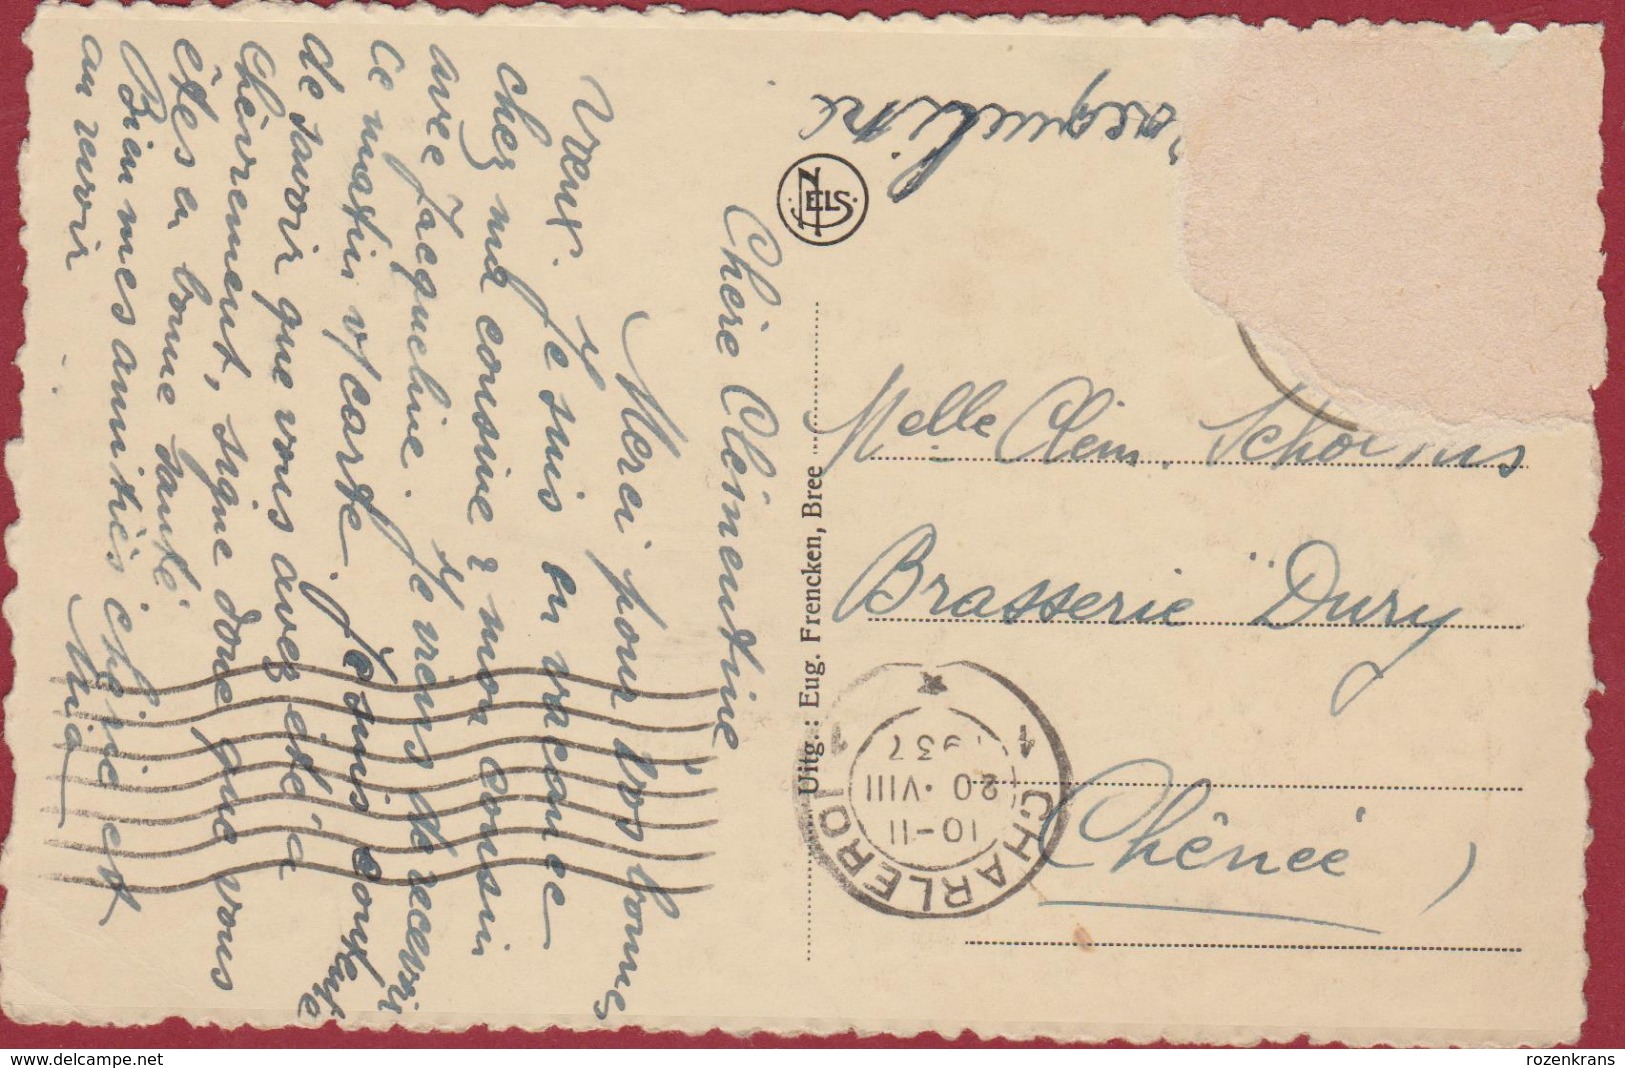 Chère Clémentine
Merci pour vos bonnes
Vœux. Je suis en vacance
chez ma cousine & mon cousin
avec Jacqueline. Je viens de recevoir
ce matin v/ carte. Je suis contente
de savoir que vous avez été à
Chèvremont, signe donc que vous
êtes en bonne santé
Bien mes amitiés chérie et
au revoir
Mia
Jacqueline
NELS
Uitg.: Eug. Frencken, Bree
Melle Clém.
Brasserie Dury
Chênée
CHARLEROI
1 1
10-11
20·VIII
1937
rozenkrans